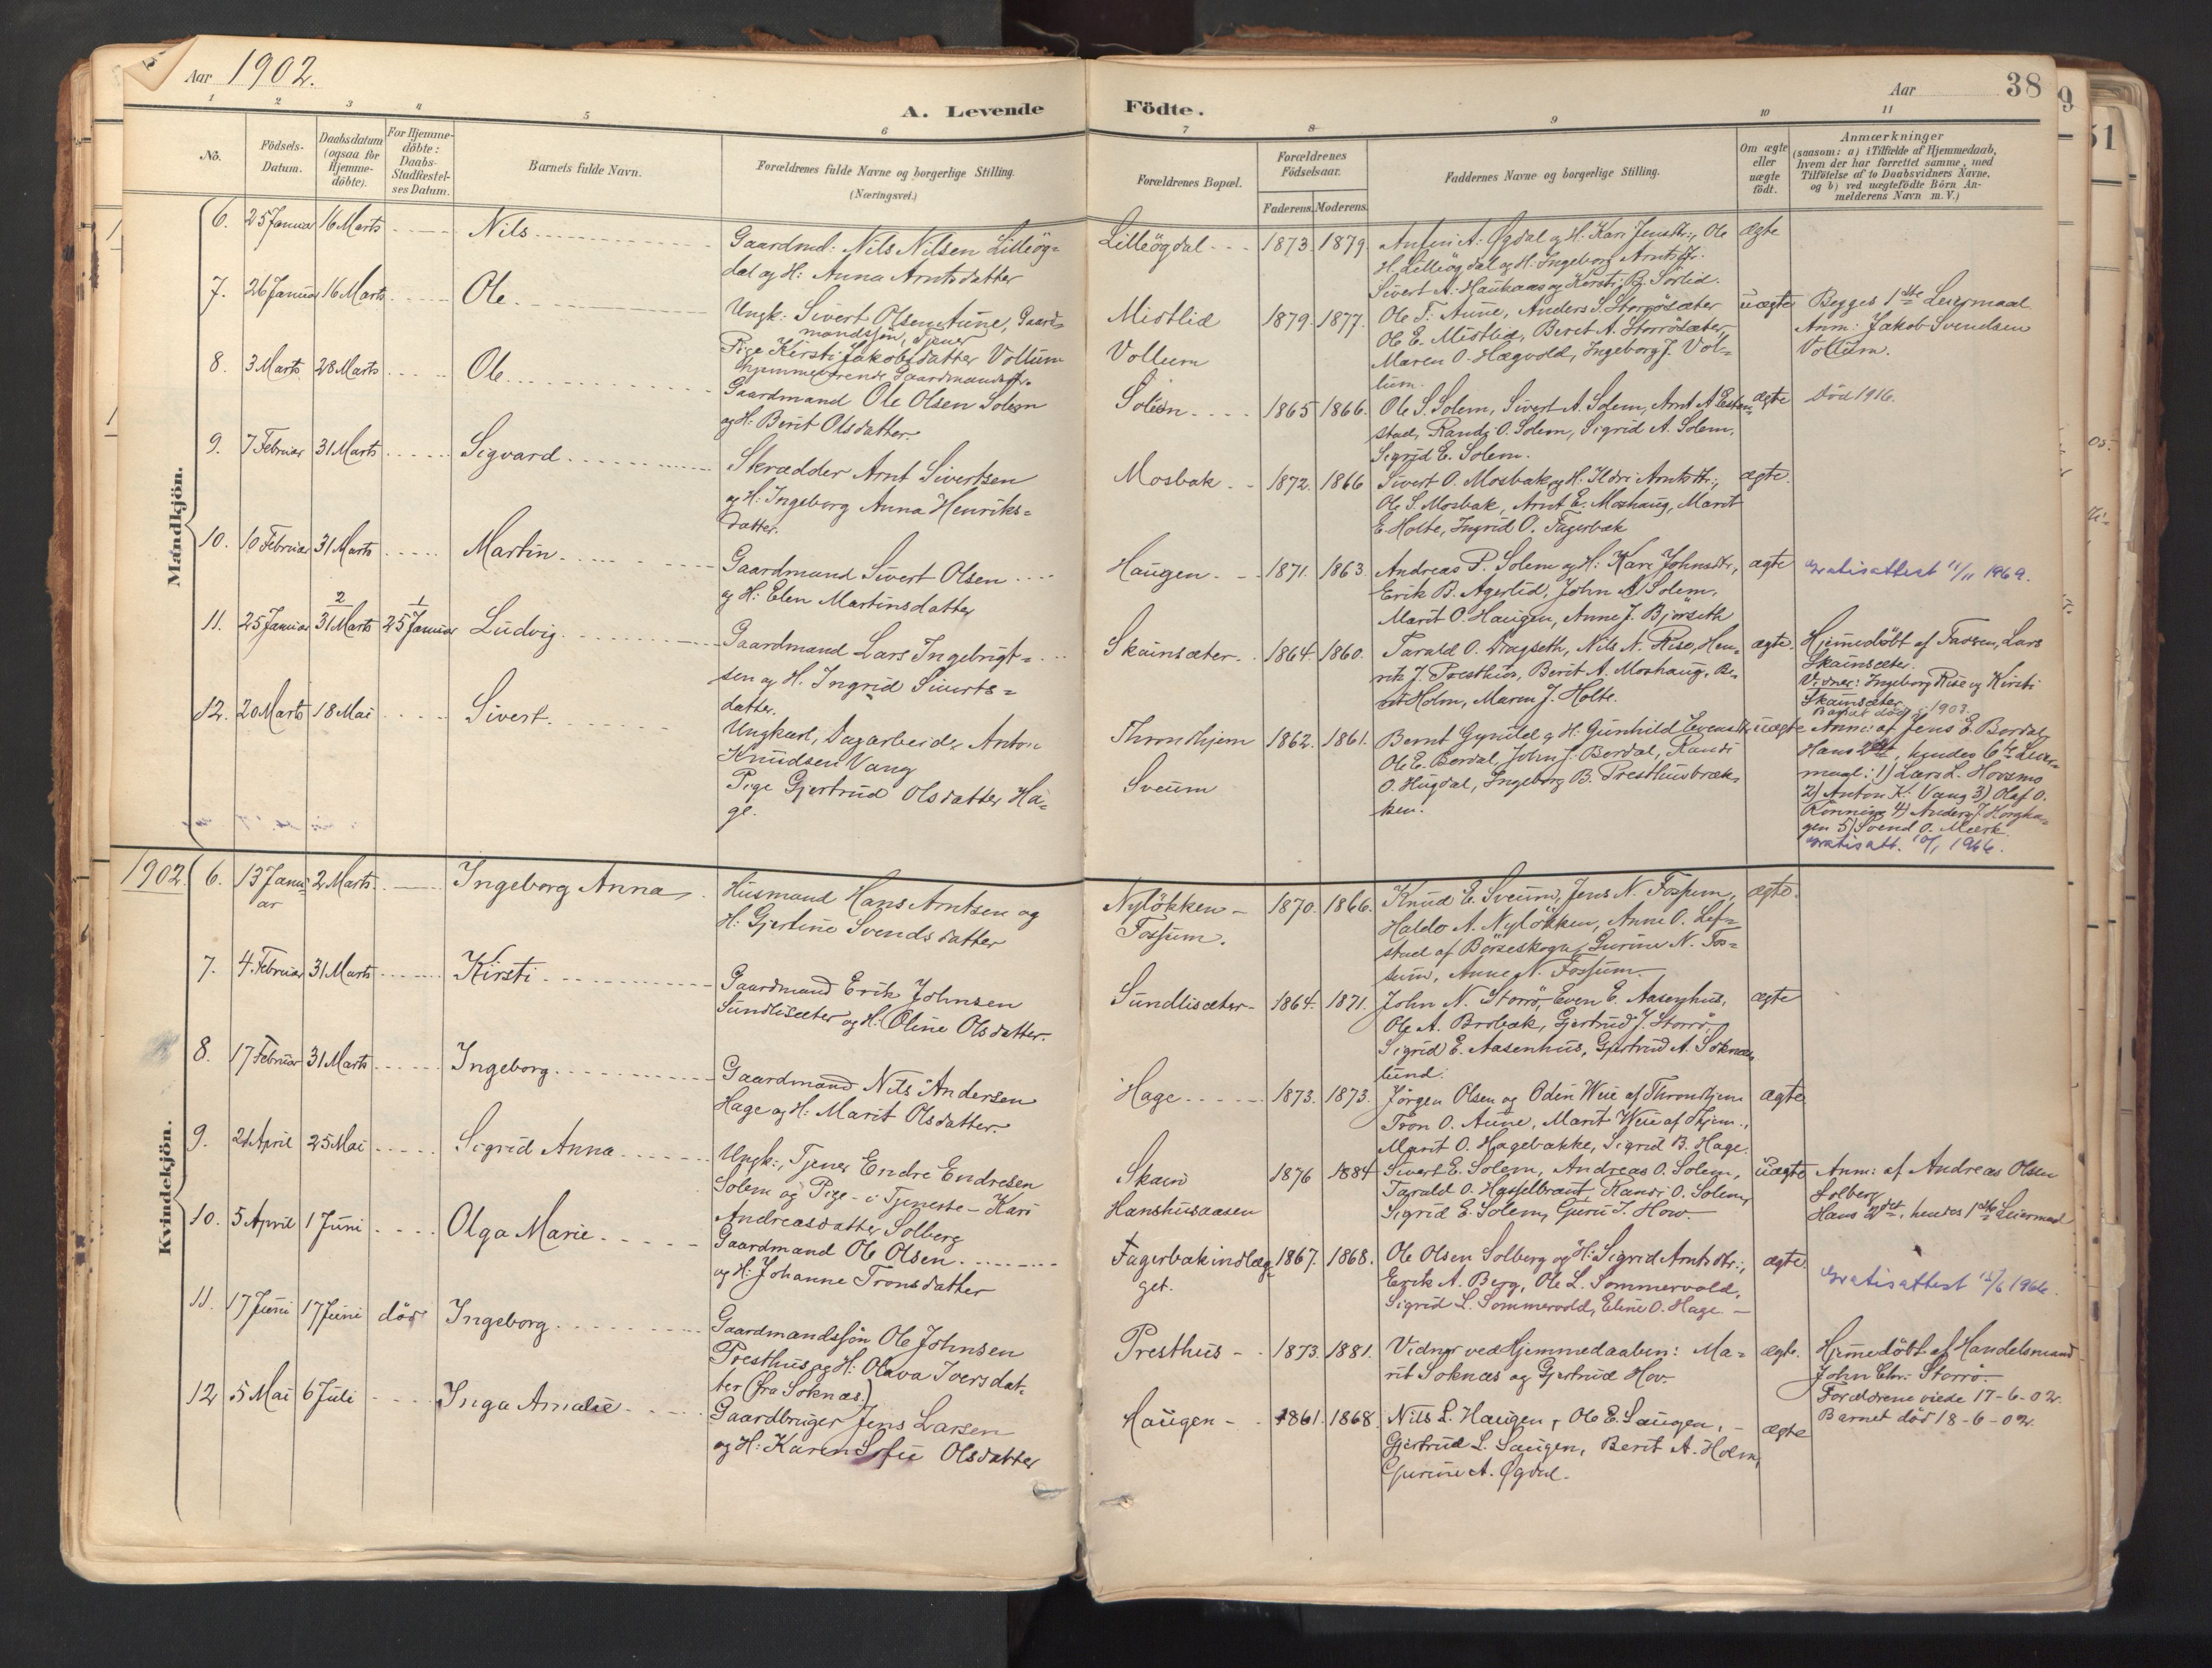 Aar 1902.
A. Levende
Nô.
Födsels-
Datum.
Daabsdatum
(ogsaa for
Hjemme-
döbte).
For Hjemme-
döbte:
Daabs-
Stadfæstel-
ses Datum.
Barnets fulde Navn.
Forældrenes fulde Navne og borgerlige Stilling.
(Næringsvei.)
Mandkjön.
6. 25 Januar 16 Marts Nils
Gaardmd: Nils Nilsen Lilleög=
dal og H: Anna Arntsdatter
7. 26 Januar 16 Marts Ole
Ungk: Sivert Olsen Aune, Gaard=
mandssön, Tjener
Pige Kirsti Jakobsdatter Vollum
hjemmeværende Gaardmandsdtr.
8. 3 Marts 28 Marts Ole
Gaardmand Ole Olsen Solem
og H: Berit Olsdatter.
9. 7 Februar 31 Marts Sigvard
Skrædder Arnt Sivertsen
og H: Ingeborg Anna Henriks=
datter.
10. 10 Februar 31 Marts Martin
Gaardmand Sivert Olsen
og H: Elen Martinsdatter
11. 25 Januar 2/31 Marts 1/25 Januar Ludvig
Gaardmand Lars Ingebrigt=
sen og H. Ingrid Siverts=
datter.
12. 20 Marts 18 Mai Sivert
Ungkarl, Dagarbeider Anton
Knudsen Vang
Pige Gjertrud Olsdatter Ha=
ge.
1902
Kvindekjön.
6. 13 Janu=
ar 2 Marts Ingeborg Anna
Husmand Hans Arntsen og
H: Gjertine Svendsdatter
7. 4. Februar 31 Marts Kirsti
Gaardmand Erik Johnsen
Sundlisæter og H: Oline Olsdatter.
8. 17 Februar 31 Marts Ingeborg
Gaardmand Nils Andersen
Hage og H: Marit Olsdatter.
9. 21 April 25 Mai Sigrid Anna
Ungk:, Tjener Endre Endresen
Solem og Pige - i Tjeneste - Kari
Andreasdatter Solberg
10. 5 April 1 Juni Olga Marie
Gaardmand Ole Olsen
og H: Johanne Tronsdatter
11. 17 Juni 17 Juni död Ingeborg
Gaardmandssön Ole Johnsen
Presthus og H: Olava Iversdat=
ter (fra Soknæs)
12 5 Mai 6 Juli Inga Amalie
Gaardbruger Jens Larsen
og H: Karen Sofie Olsdatter
Aar 38
Födte.
Forældrenes Bopæl.
Forældrenes
Födselsaar.
Faderens. Moderens.
Faddernes Navne og borgerlige Stilling.
Om ægte
eller
uægte
födt.
Anmærkninger
(saasom: a) i Tilfælde af Hjemmedaab,
hvem der har forrettet samme, med
Tilföielse af to Daabsvidners Navne.
og b) ved uægtefödte Börn An-
melderens Navn m. V.)
Lilleögdal 1873. 1879. A. Øgdal og H. Kari Jensdtr., Ole ægte
H. Lilleögdal og H: Ingeborg Arntsdtr.
Sivert A. Haukaas og Kirsti B. Sörlid.
Mistlid 1879. 1877. Ole T. Aune, Anders S. Storrösæter uægte Begges 1ste Leiermaal
Ole E. Mistlid, Berit A. Storrösæter, Anm: Jakob Svendsen
Vollum Maren O. Hægvold, Ingeborg J. Vol= Vollum.
lum.
Solem 1865 1866. Ole S. Solem, Sivert A. Solem, Arnt A. ægte Död 1916.
stad, Randi O. Solem, Sigrid A. Solem,
Sigrid E. Solem.
Mosbak 1872. 1866 Sivert O. Mosbak og H. Ildri Arntsdtr., ægte.
Ole S. Mosbak, Arnt E. Moshaug, Marit
E. Holte, Ingrid O. Fagerbæk
Haugen 1871. 1863. Andreas P. Solem og H: Kari Johnsdtr., ægte Gratisattest 11/11 1969.
Erik B. Agerlid, John A. Solem,
Marit O. Haugen, Anne J. Bjørseth
Skainsæter 1864. 1860. Tarald O. Dragseth, Nils N. Rise, Hen= ægte. Hjemmedöbt af Faderen, Lars
rik J. Presthus, Berit A. Moshaug, Be= Skainsæter.
rit Holm, Maren J. Holte. Vidner: Ingeborg Rise og Kirsti
Skainsæter.
Barnet död 1903.
Throndhjem 1862. 1861. Bernt Gynild og H: Gunhild Evensdtr. uægte Anm: af Jens E. Bordal,
Ole E. Bordal, John J. Bordal, Randi Hans 2det, hendes 6te Leier=
Sveum O. Hugdal, Ingeborg B. Presthusbræk= maal: 1) Lars L. Hovsmo
ken. 2) Anton K. Vang 3) Olaf O.
Rönning 4) Anders J. Horgha=
gen 5) Svend O. Mærk.
Gratisatt. 10/1 1966.
Nylökken - 1870. 1866. Knud E. Sveum, Jens N. Fossum, ægte.
Fossum. Haldo A. Nylökken, Anne O. Lef=
stad af Börseskogn, Gurine N. Fos=
sum, Anne N. Fossum.
Sundlisæter 1864. 1871. John N. Storrö, Even E. Aasenhus, ægte
Ole A. Brobæk, Gjertrud J. Storrö,
Sigrid E. Aasenhus, Gjertrud A. Soknæs
lund.
Hage 1873. 1873. Jörgen Olsen og Odin Weie af Throndhjem ægte
Tron O. Aune, Marit Weie af Thjem.,
Marit O. Hagebakke, Sigrid B. Hage.
Skain 1876 1884 Sivert E. Solem, Andreas O. Solem, uægte Anm: af Andreas Olsen
Tarald O. Hasselbrant, Randi O. Solem, Solberg
Hanshusaasen Sigrid E. Solem, Guru J. Hov. Hans 2det, hendes 1ste Leiermaal
Fagerbakindlæg= 1867. 1868. Ole Olsen Solberg og H: Sigrid Arntsdtr., ægte. Gratisattest 15/6 1966.
get. Erik A. Berg, Ole L. Sommervold,
Sigrid L. Sommervold, Eline O. Hage.
Presthus 1873. 1881. Vidner ved Hjemmedaaben: Ma= ægte. Hjemmedöbt af Handelsmand
rit Soknæs og Gjertrud Hov. John Chr. Storrö.
Forældrene viede 17-6-02.
Barnet död 18-6-02.
Haugen 1861. 1868. Nils L. Haugen, Ole E. Saugen, ægte
Gjertrud L. Saugen, Berit A. Holm,
Gurine A. Øgdal.